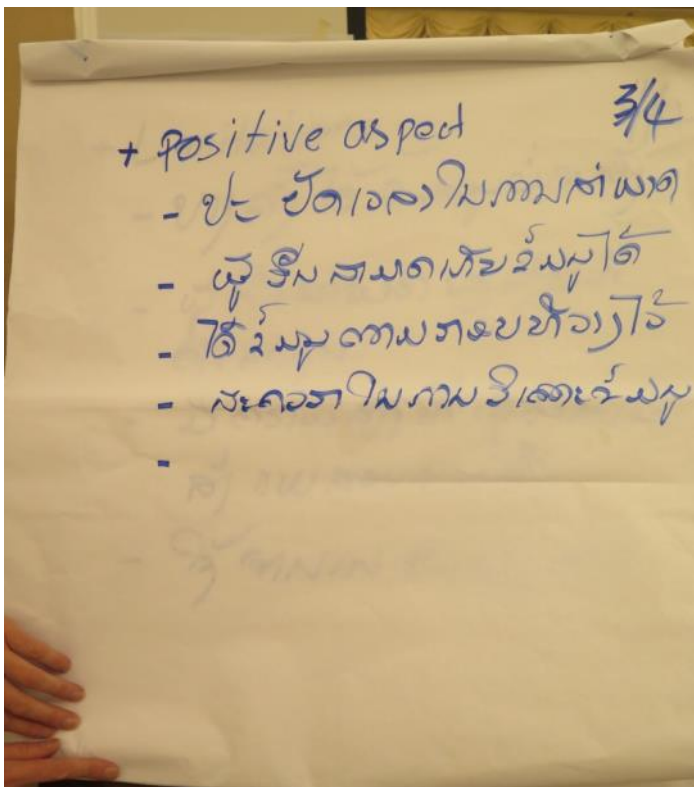 3/4
+ Positive aspect
- ປະຢັດເວລາໃນການສຳພາດ
- ຜູ້ອື່ນສາມາດເກັບຂໍ້ມູນໄດ້
- ໄດ້ຂໍ້ມູນຕາມກອບທີ່ວາງໄວ້
- ສະດວກໃນການວິເຄາະຂໍ້ມູນ
-